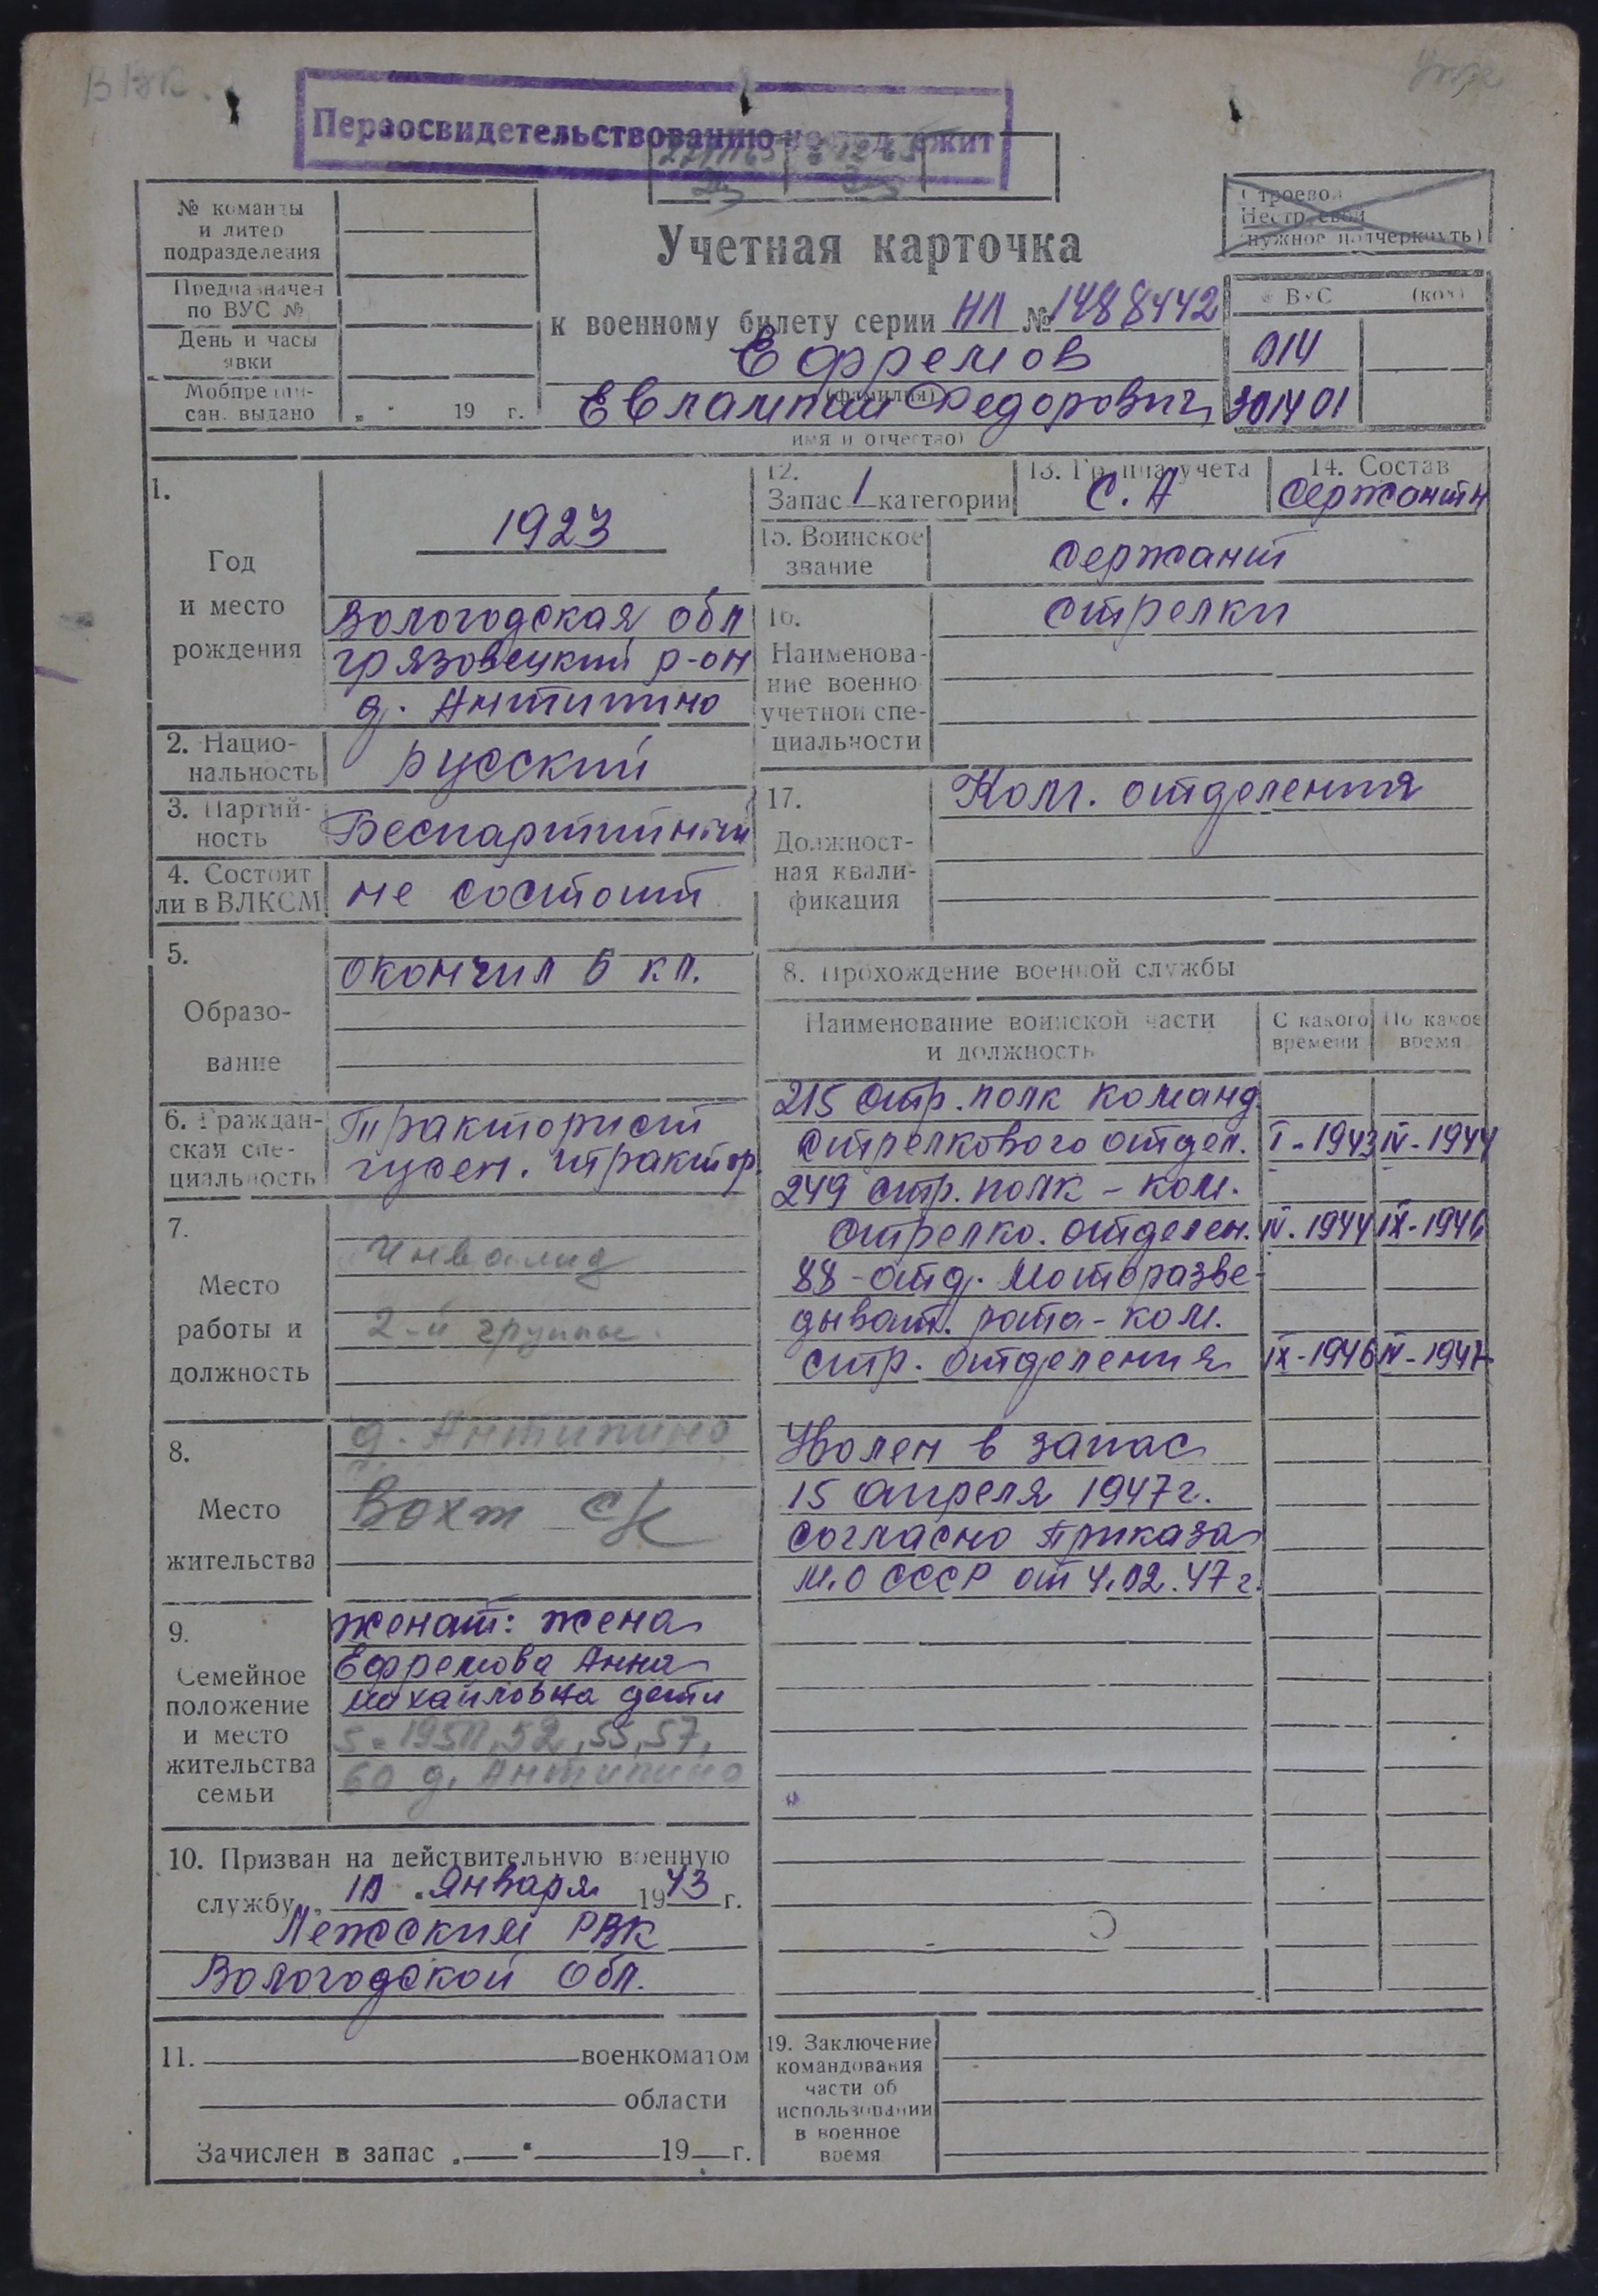 ВВК.
Переосвидетельствованию не подлежит
№ команды
и литер
подразделения
Предназначен
по ВУС №
День и часы
явки
Мобпредпи-
сан. выдано „ " 19 г.
Учетная карточка
к военному билету серии НЛ № 1488442
Ефремов
(фамилия)
Евлампий Федорович
имя и отчество)
Строевой
Нестроевой
(нужное подчеркнуть)
ВУС (код)
014
301401
1.
Год
и место
рождения
1923
Вологодская обл
грязовецкий р-он
д. Антипино
2. Нацио-
нальность
русский
3. Партий-
ность
Беспартийный
4. Состоит
ли в ВЛКСМ
не состоит
5.
Образо-
вание
окончил 5 кл.
6. Граждан-
ская спе-
циальность
Тракторист
гусен. трактор.
7.
Место
работы и
должность
Инвалид
2-й группы.
8.
Место
жительства
д. Антипино
Вохт с/с
9.
Семейное
положение
и место
жительства
семьи
женат: жена
Ефремова Анна
михайловна дети
5 = 1950, 52, 55, 57,
60 д. Антипино
10. Призван на действительную военную
службу „ 10 " Января 1943 г.
Лежский РВК
Вологодской обл.
11. военкоматом
области
Зачислен в запас „ " 19 г.
12.
Запас 1 категории
13. Группа учета
С. А
14. Состав
Сержантн
15. Воинское
звание
Сержант
16.
Наименова-
ние военно
учетной спе-
циальности
стрелки
17.
Должност-
ная квали-
фикация
Ком. отделения
8. Прохождение военной службы
Наименование воинской части
и должность
С какого
времени
По какое
время
215 стр. полк команд.
стрелкового отдел. I-1943 IV-1944
249 стр. полк - ком.
стрелко. отделен. IV-1944 IX-1946
88 - отд. Моторазве-
дыват. рота - ком.
стр. отделения IX-1946 IV-1947
Уволен в запас
15 апреля 1947г.
согласно приказа
М.О СССР от 4.02.47 г.
19. Заключение
командования
части об
использовании
в военное
время